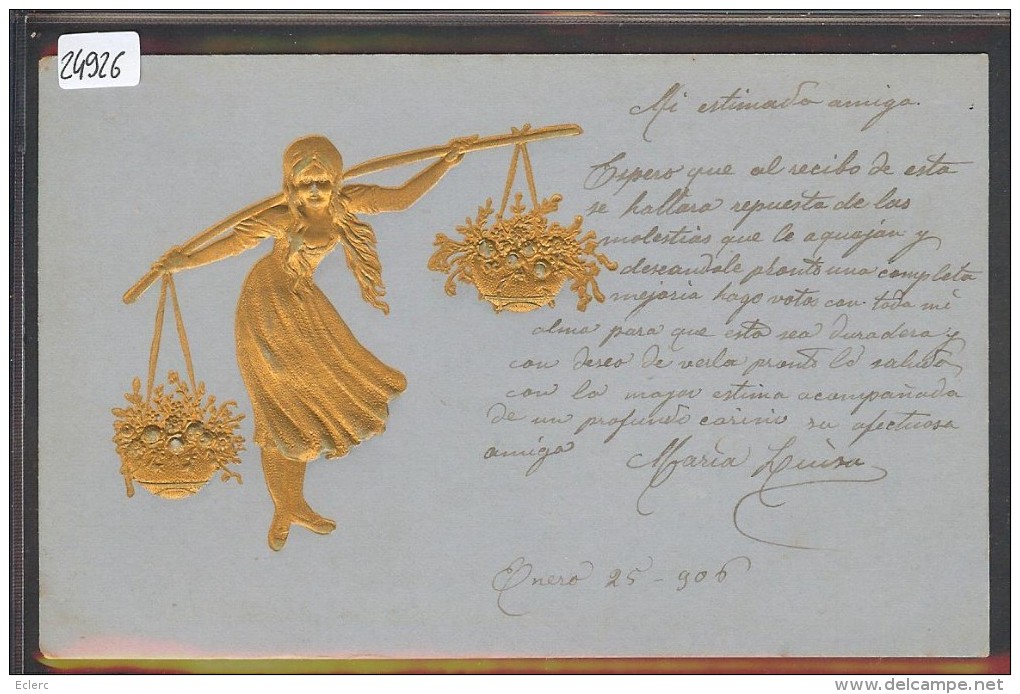 24926
Mi estimada amiga.
Espero que al recibo de esta
se hallara repuesta de las
molestias que le aquejan y
deseandole pronto una completa
mejoria hago votos con toda mi
alma para que esta sea duradera y
con deseo de verla pronto la saluda
con la mayor estima acompañada
de un profundo cariño su afectuosa
amiga María Luisa
Enero 25 - 906
Eclerc
www.delcampe.net